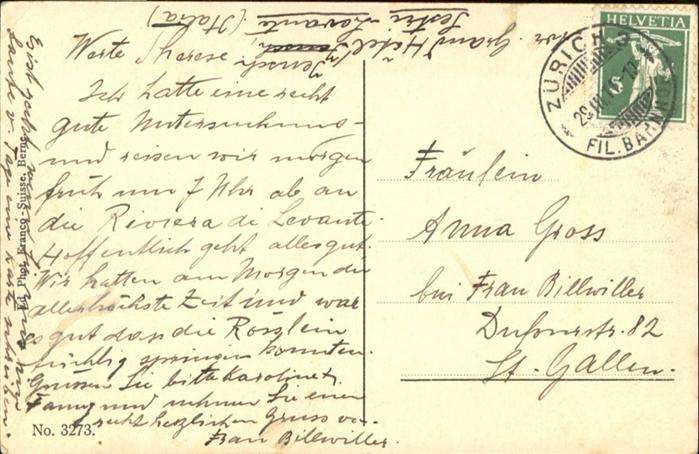 Grand Hôtel Jensch
Sestri Levante (Italia)
Werte Therese
Ich hatte eine recht
gute Untersuchung
und reisen wir morgen
früh um 7 Uhr ab an
die Riviera di Levante.
Hoffentlich geht alles gut.
Wir hatten am Morgen die
allerhöchste Zeit und war
es gut dass die Rösslein
tüchtig springen konnten.
Grüssen Sie bitte Karoline
Fanny und nehmen Sie einen
recht herzlichen Gruss von
Frau Billwiller
No. 3273.
Ed. Phot. Franco-Suisse, Berne
HELVETIA
5
ZÜRICH
FIL. BAHNHOF
Fräulein
Anna Gross
bei Frau Billwiller
Dufourstr. 82
St. Gallen.